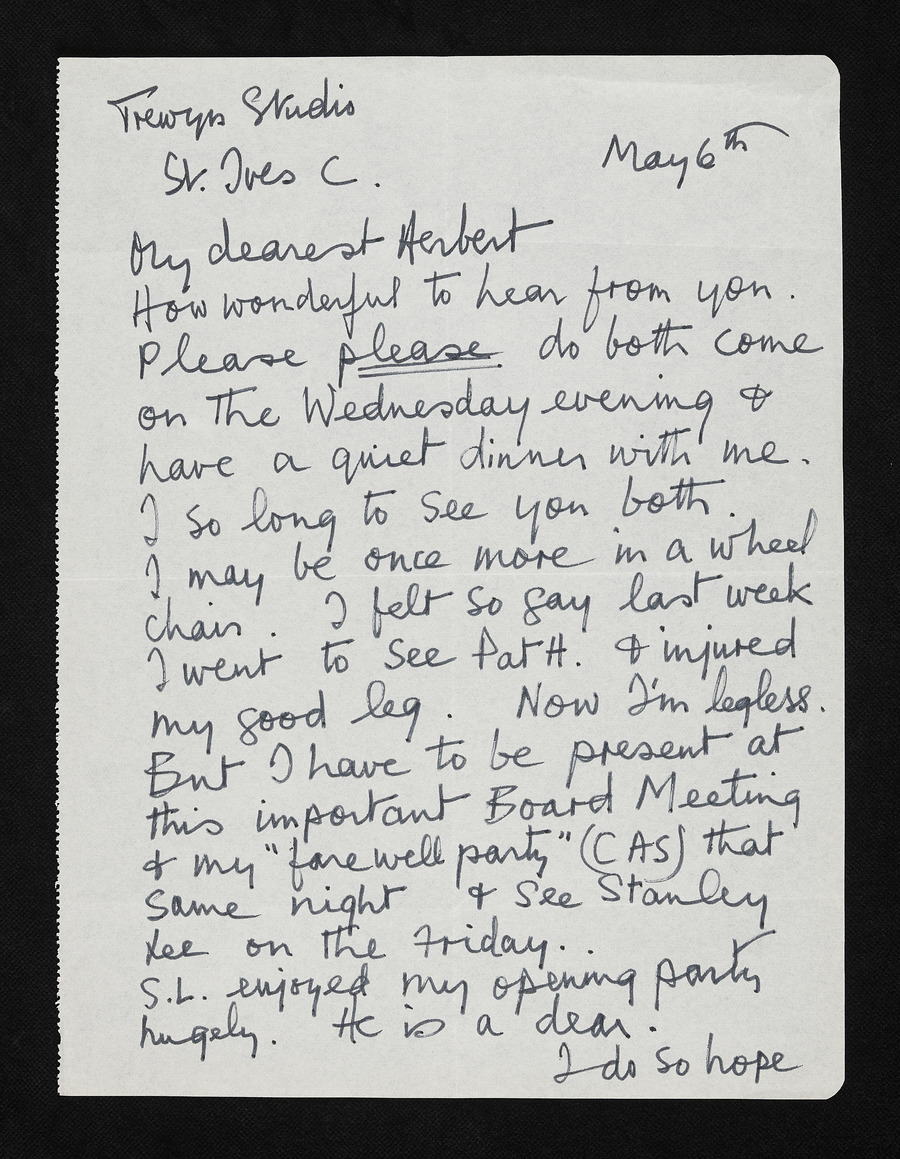 Trewyn Studio
St. Ives C.
May 6th
My dearest Herbert
How wonderful to hear from you.
Please please do both come
on the Wednesday evening &
have a quiet dinner with me.
I so long to see you both.
I may be once more in a wheel
chair. I felt so gay last week
I went to see Pat H. & injured
my good leg. Now I'm legless.
But I have to be present at
this important Board Meeting
& my "farewell party" (CAS) that
same night & see Stanley
Lee on the Friday..
S.L. enjoyed my opening party
hugely. He is a dear.
I do so hope